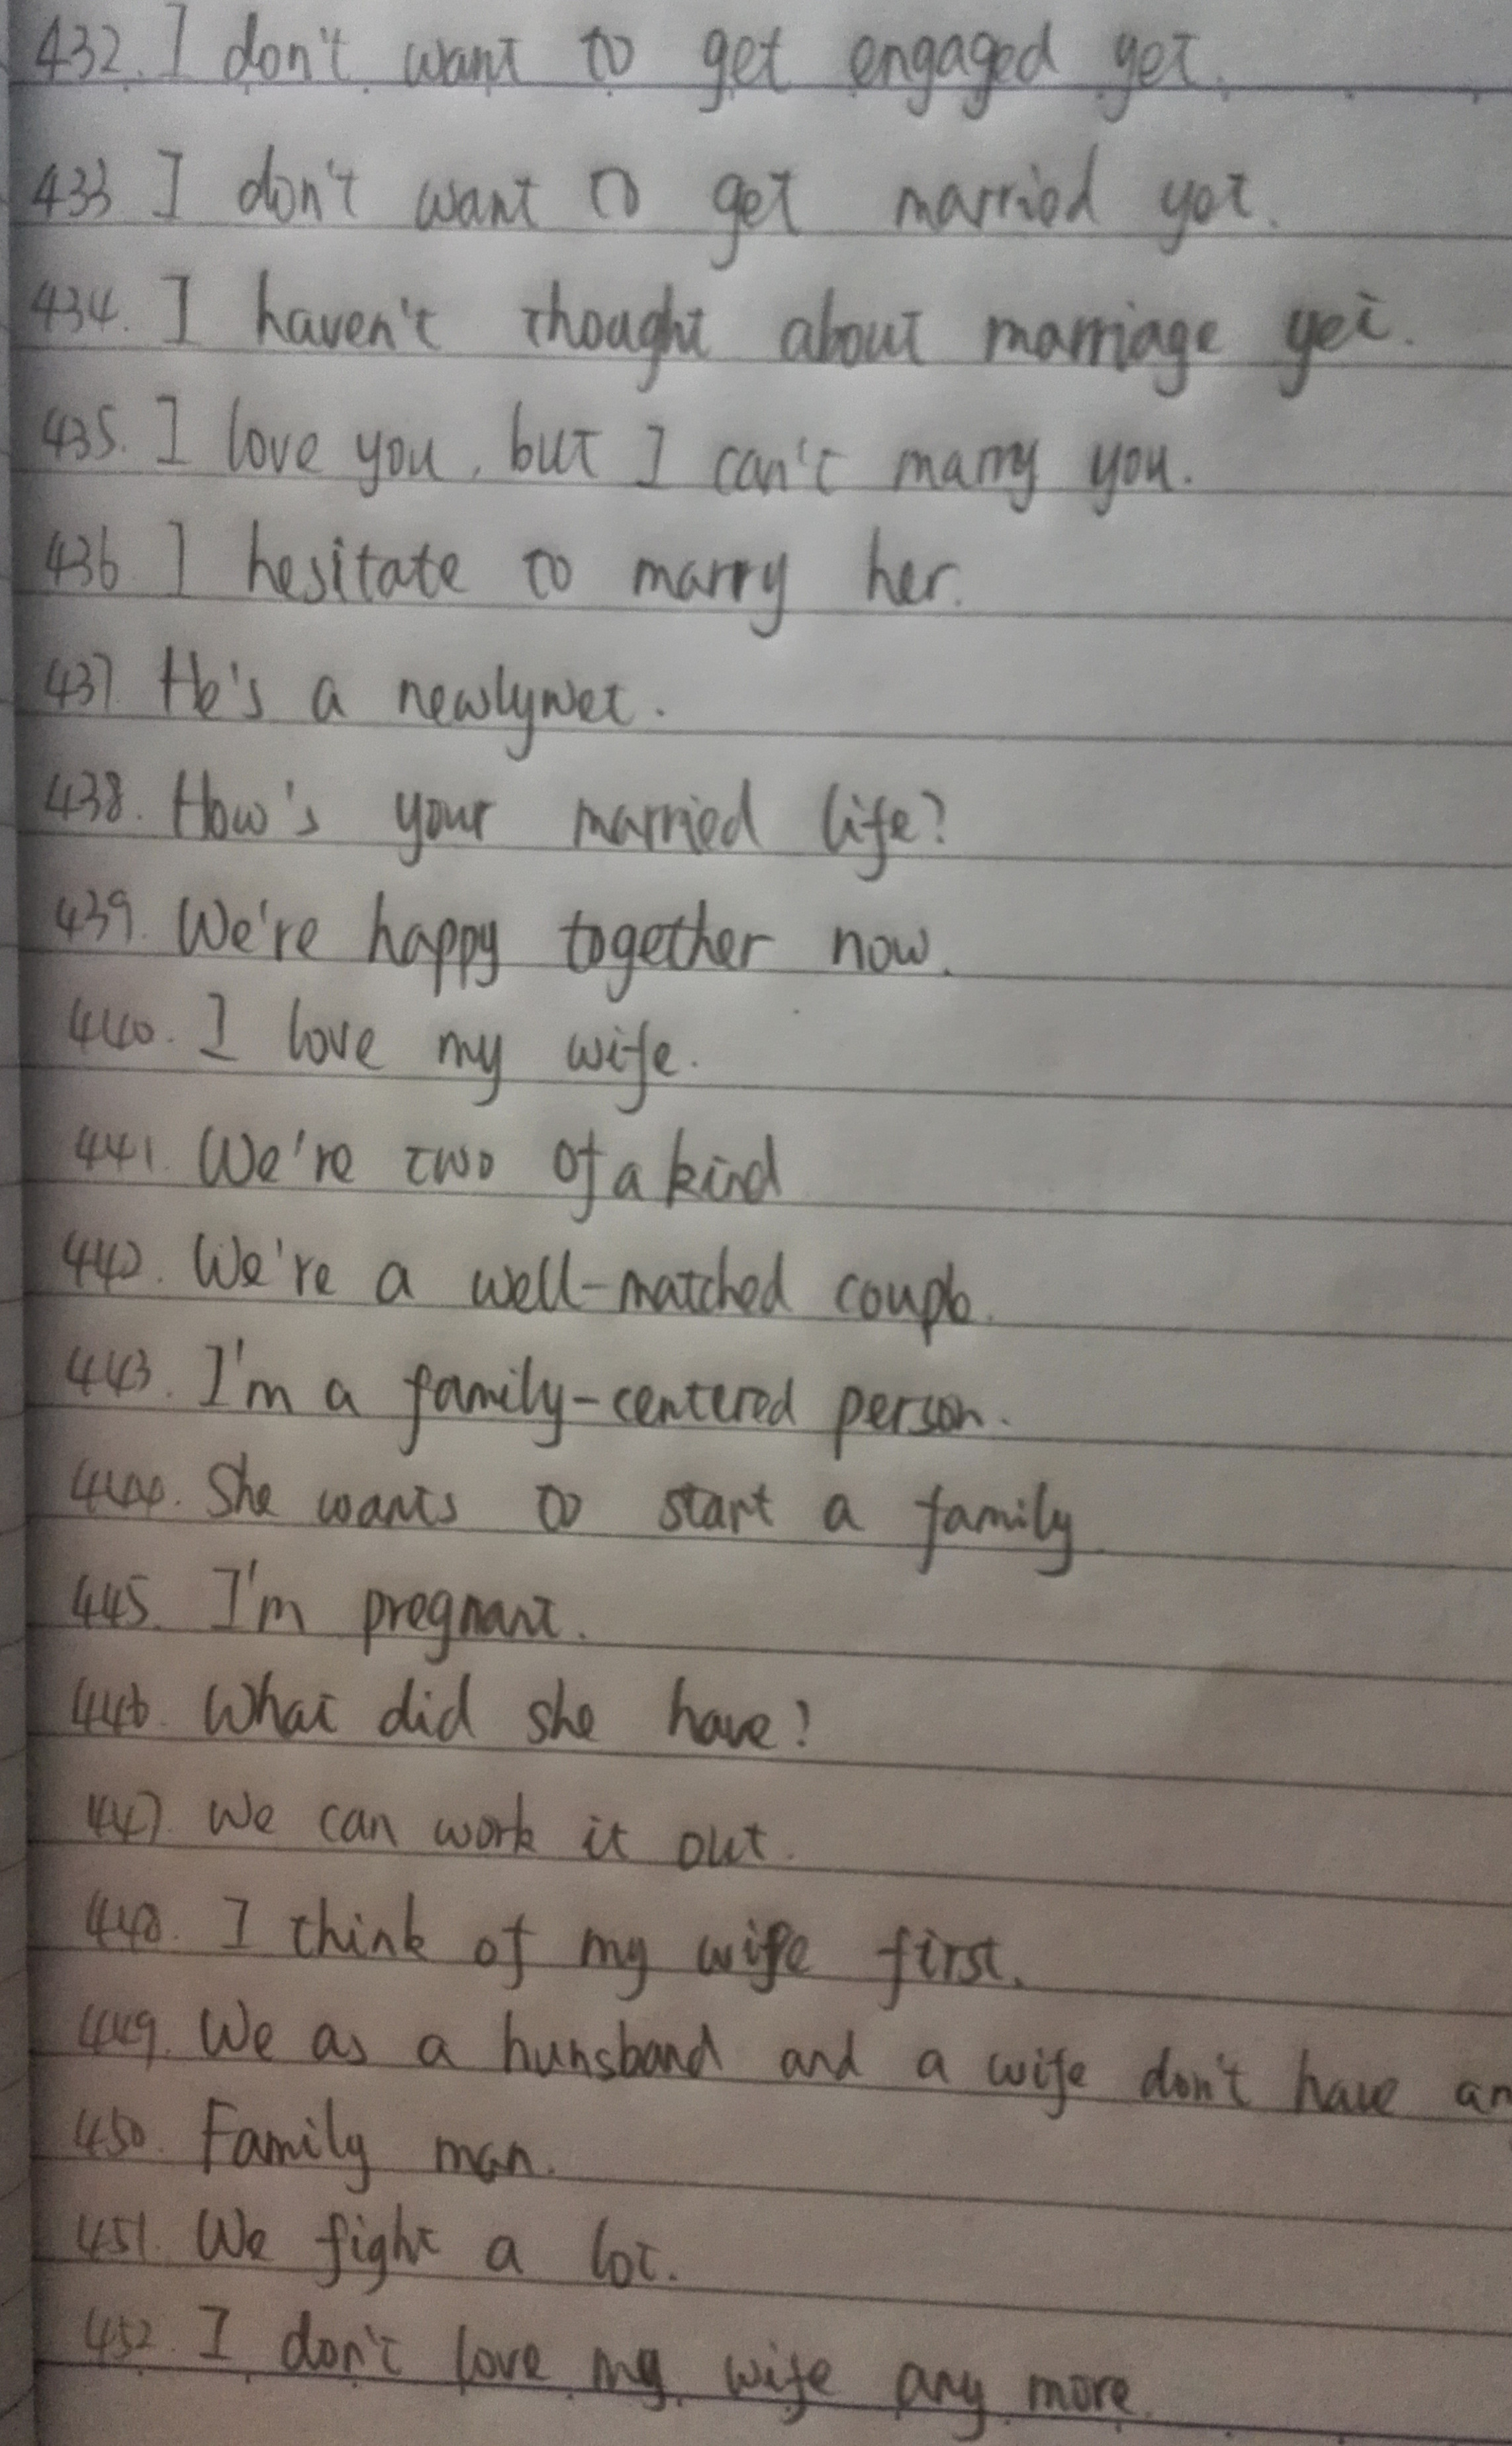 432. I don't want to get engaged yet.
433 I don't want to get married yet.
434. I haven't thought about marriage yet.
435. I love you, but I can't marry you.
436 I hesitate to marry her.
437 He's a newlywet.
438. How's your married life?
439. We're happy together now.
440. I love my wife.
441. We're two of a kind
442. We're a well-matched couple.
443. I'm a family-centered person.
444. She wants to start a family.
445. I'm pregnant.
446. What did she have?
447. We can work it out.
448. I think of my wife first.
449. We as a hunsband and a wife don't have an
450. Family man.
451. We fight a lot.
452. I don't love my wife any more.